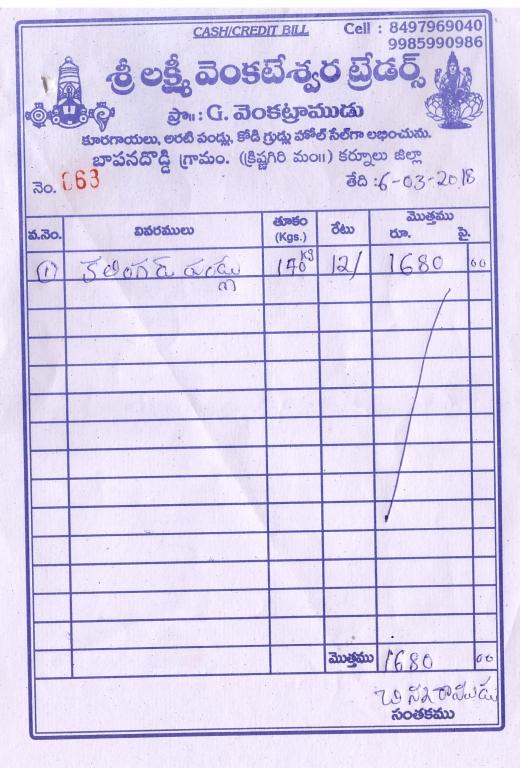 CASH/CREDIT BILL
Cell : 8497969040
9985990986
శ్రీ లక్ష్మీ వెంకటేశ్వర ట్రేడర్స్
ప్రొ॥ : G. వెంకట్రాముడు
కూరగాయలు, అరటి పండ్లు, కోడి గ్రుడ్లు హోల్ సేల్‌గా లభించును.
బాపనదొడ్డి గ్రామం. (క్రిష్ణగిరి మం॥) కర్నూలు జిల్లా
నెం. 063 తేది :6-03-2018
వ.నెం. వివరములు తూకం (Kgs.) రేటు మొత్తము రూ. పై.
① కలింగర పండ్లు 140 kg 12/ 1680 00
మొత్తము 1680 00
సంతకము